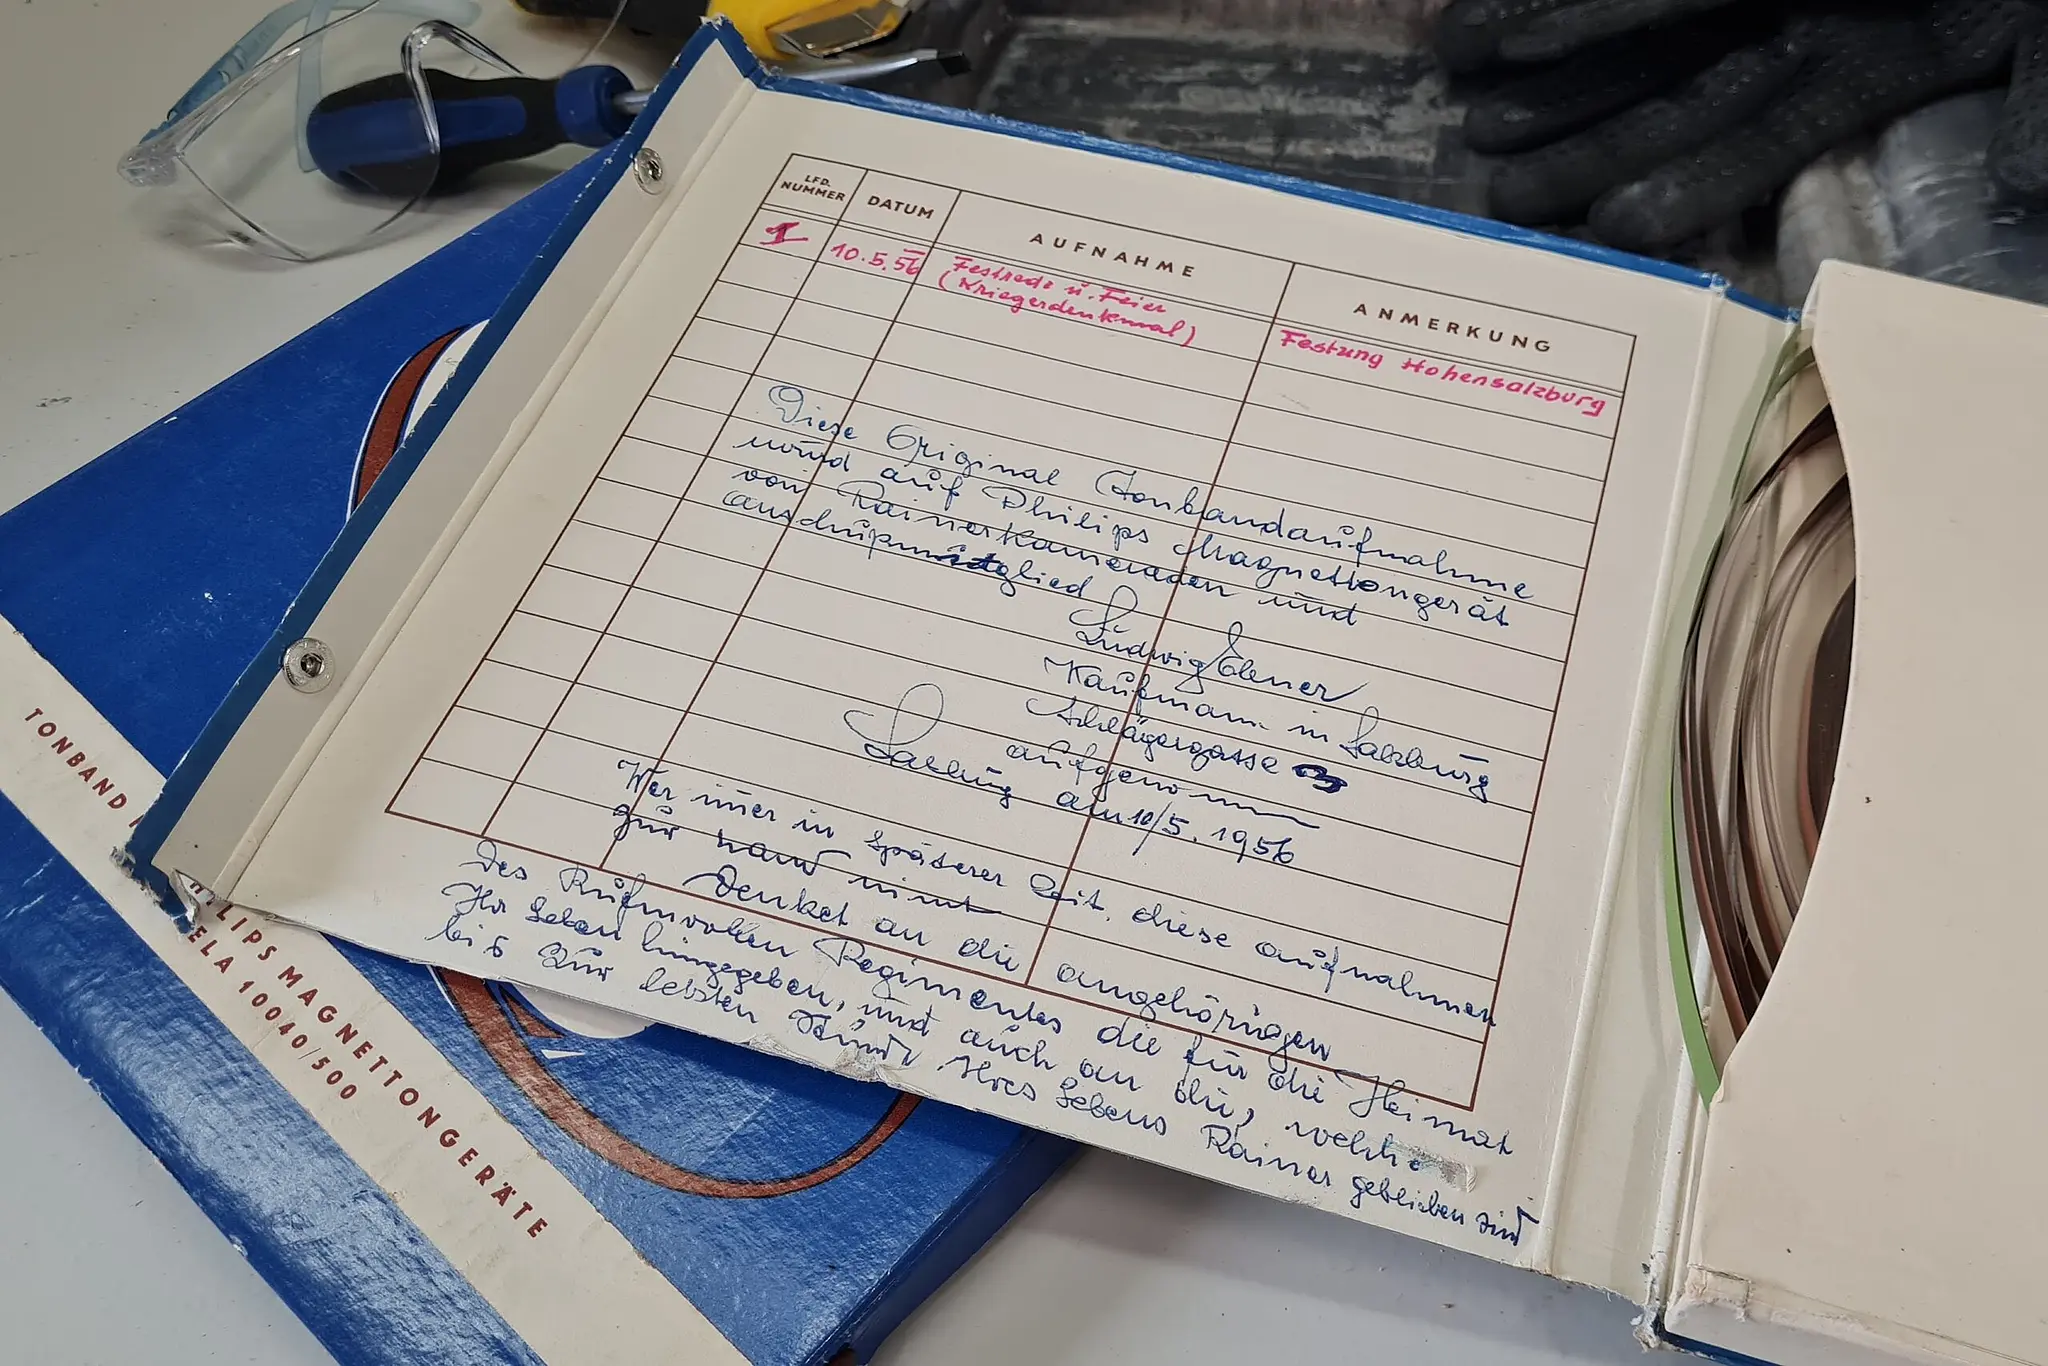 LFD. NUMMER
DATUM
AUFNAHME
ANMERKUNG
1
10.5.56
Festrede u. Feier
(Kriegerdenkmal)
Festung Hohensalzburg
Diese Original Tonbandaufnahme
wurd auf Philips Magnettongerät
von Rainerkameraden und
Ludwig
Kaufmann in Salzburg
aufgenommen
Salzburg am 10/5. 1956
Wer imer in späterer Zeit, diese aufnahmen
zur nimt
Denket an die angehörigen
Des Rufmvollen Regimentes die für die Heimat
Ihr Leben hingegeben, und auch an die, welche
bis zur letzten Stunde Ihres Lebens Rainer geblieben sind
TONBAND
PHILIPS MAGNETTONGERÄTE
ELA 10040/500